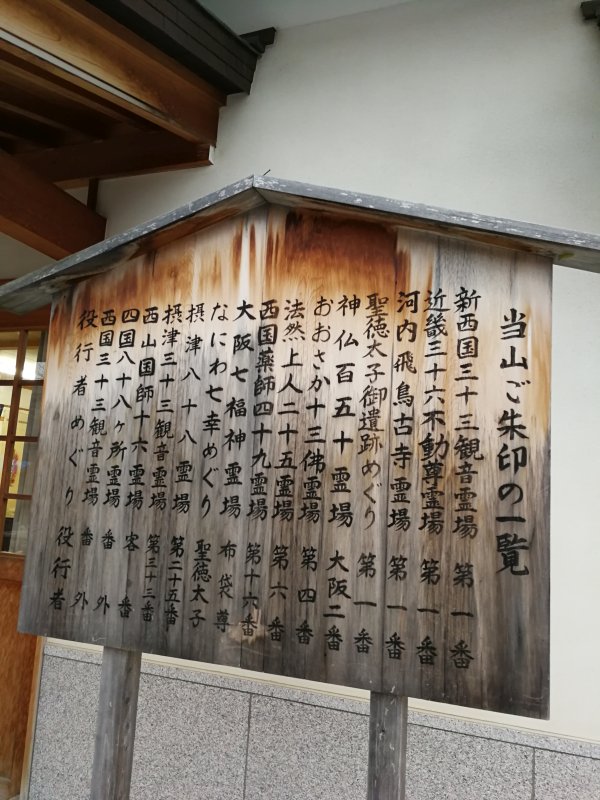 当山ご朱印の一覧
新西国三十三観音霊場 第一番
近畿三十六不動尊霊場 第一番
河内飛鳥古寺霊場 第一番
聖徳太子御遺跡めぐり 第一番
神仏百五十霊場 大阪二番
おおさか十三佛霊場 第四番
法然上人二十五霊場 第六番
西国薬師四十九霊場 第十六番
大阪七福神霊場 布袋尊
なにわ七幸めぐり 聖徳太子
摂津八十八霊場 第二十五番
摂津三十三観音霊場 第三十三番
西山国師十六霊場 客番
四国八十八ヶ所霊場 番外
西国三十三観音霊場 番外
役行者めぐり 役行者